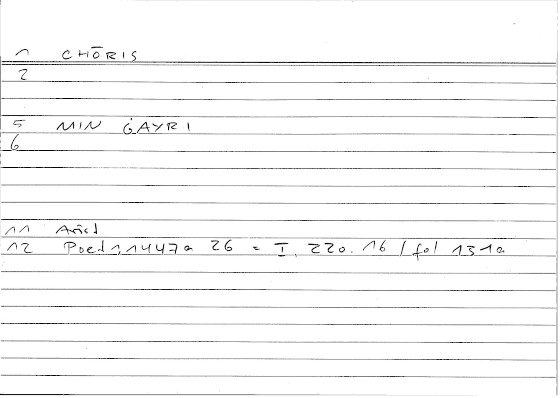 1 CHŌRIS
2
5 MIN ĠAYRI
6
11 Arist
12 Poet 1, 1447a 26 = I, 220. 16 / fol 131a